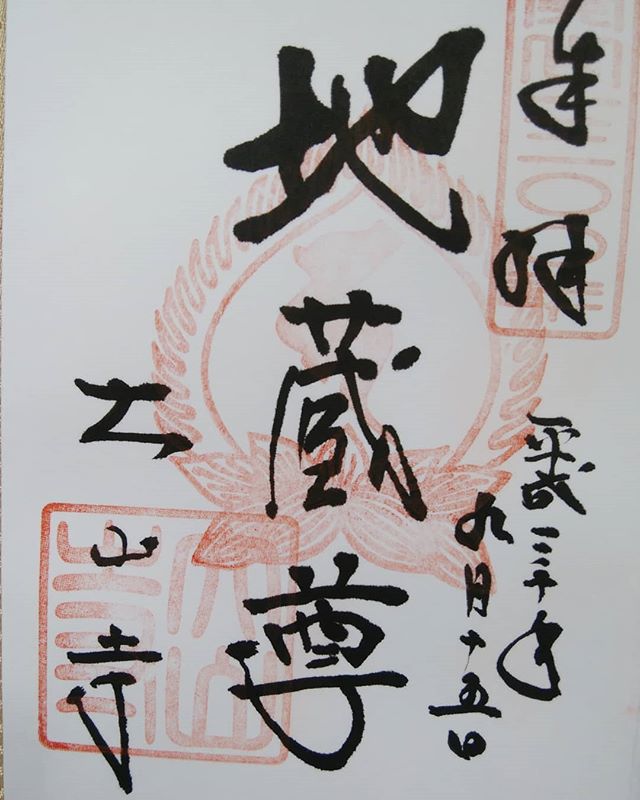 奉拝
平成三十年
九月十五日
地蔵尊
大山寺
大山寺